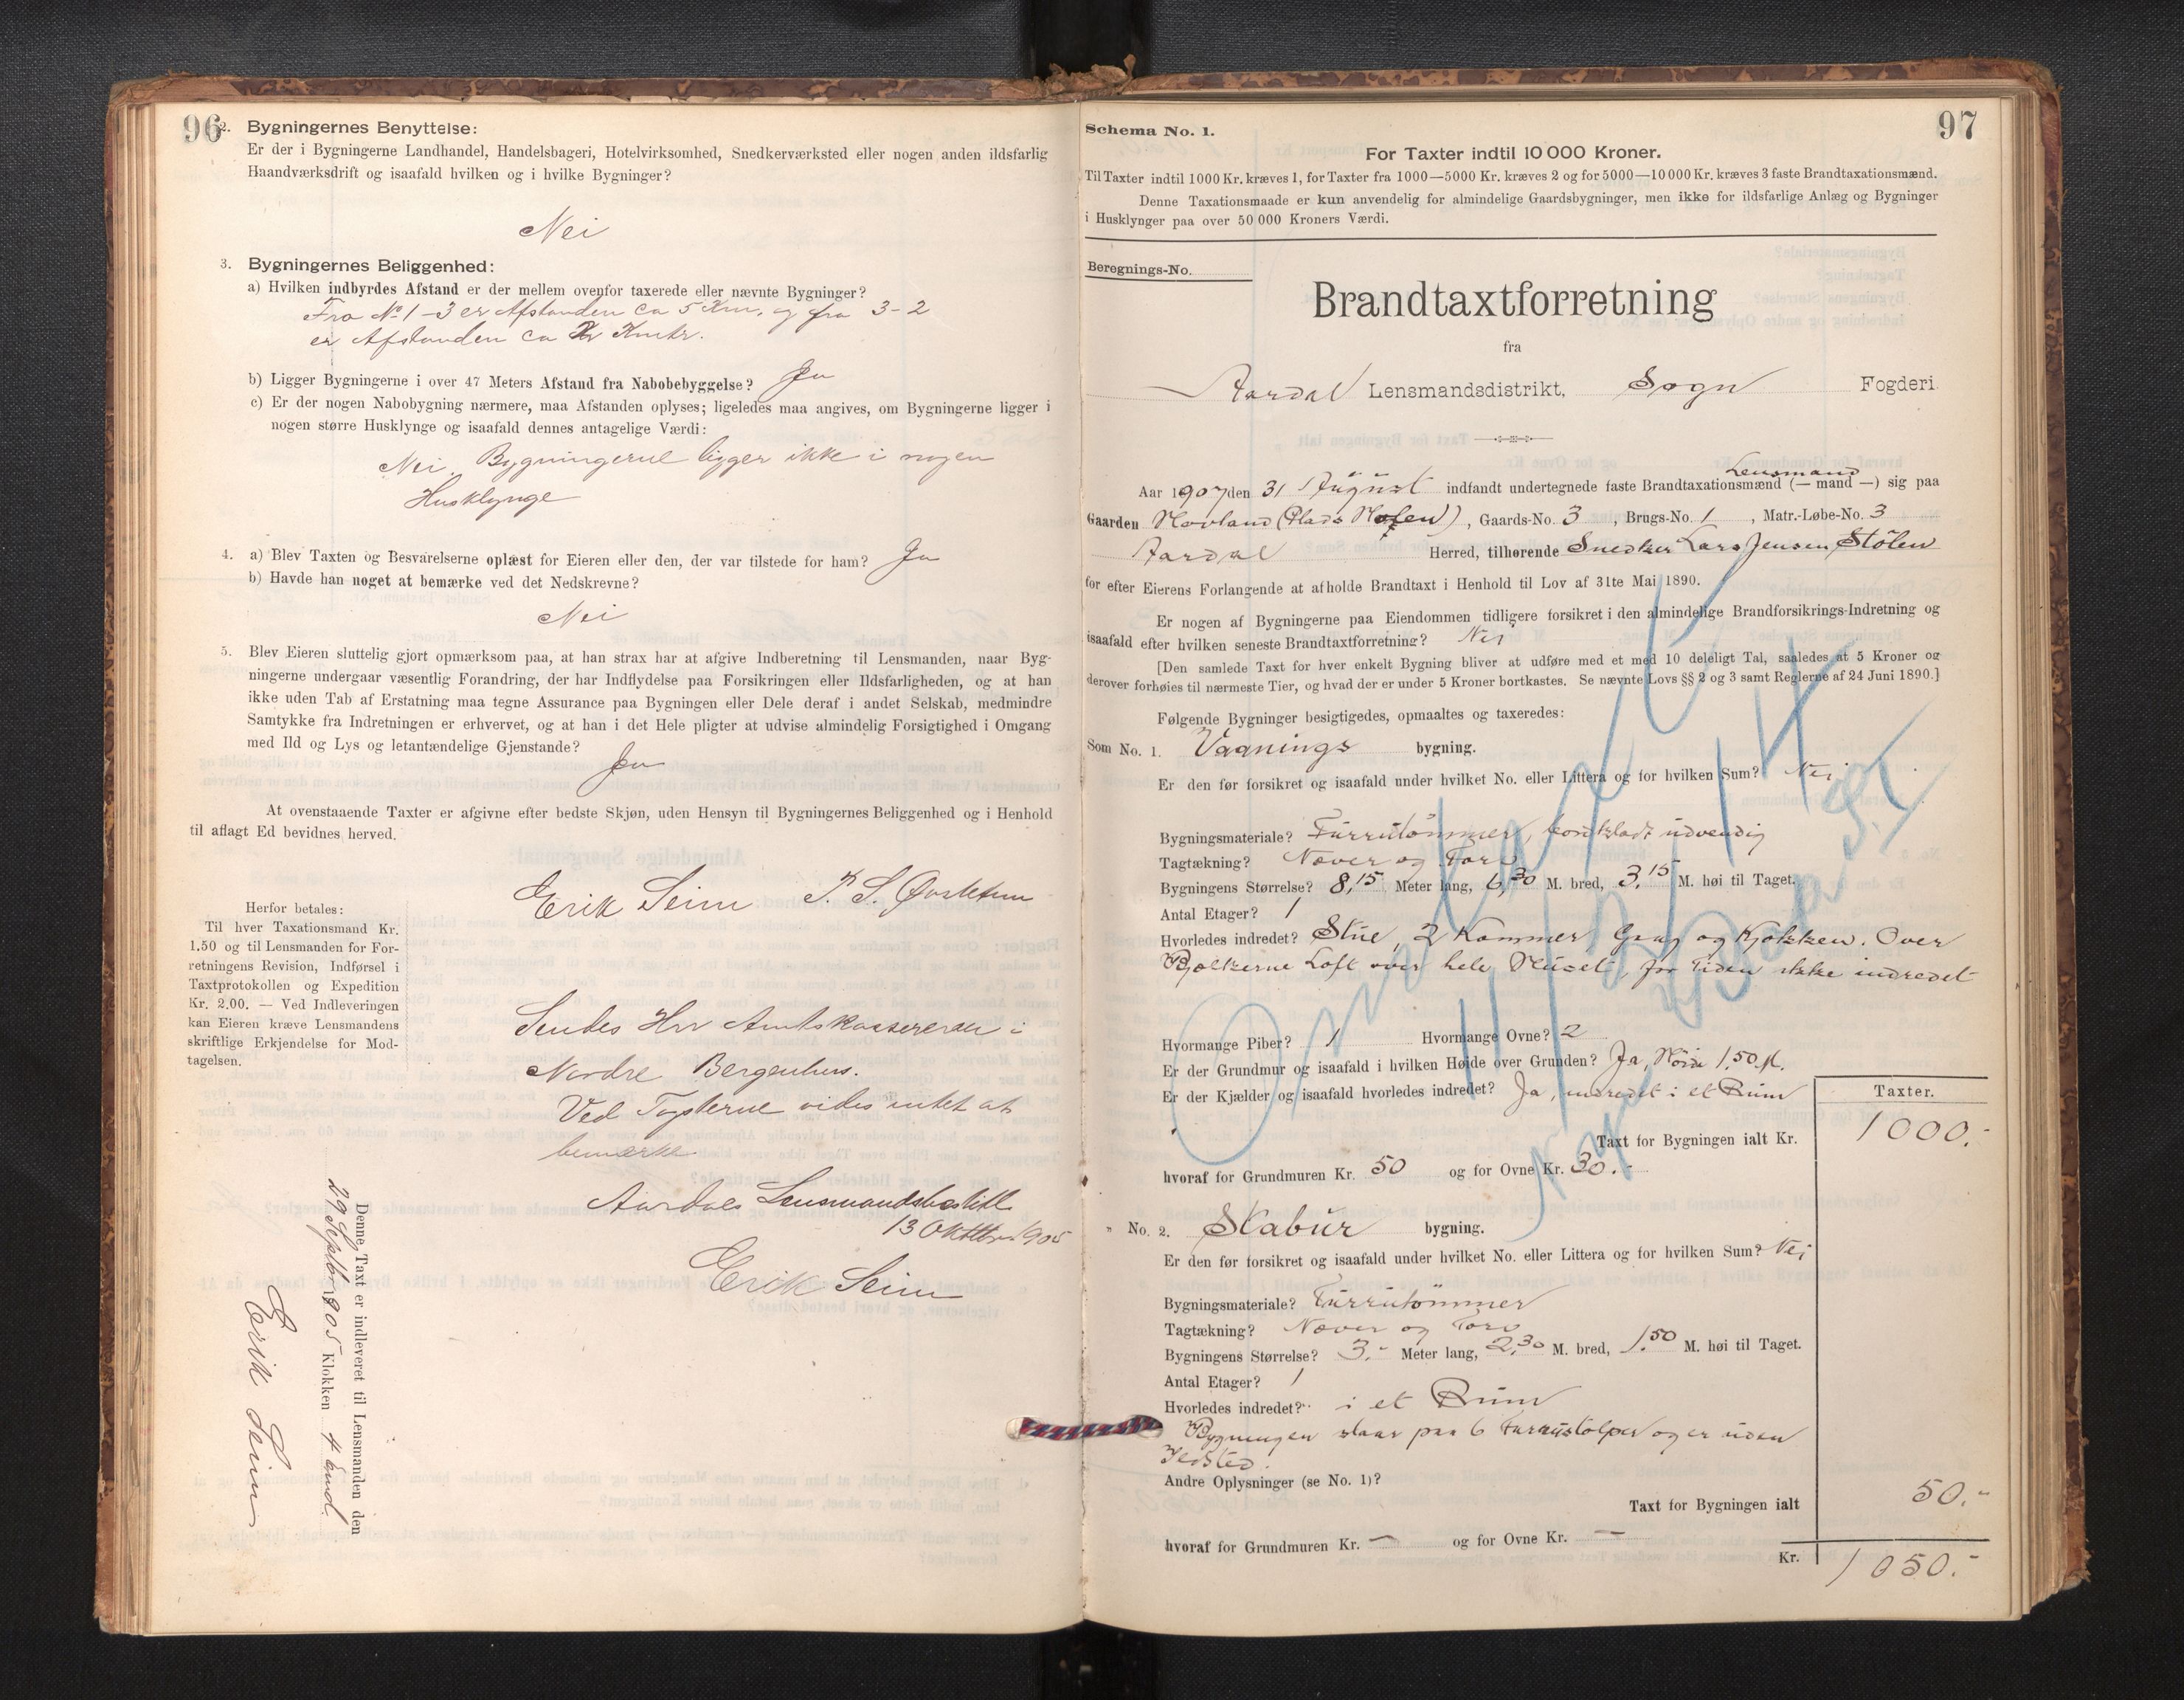 96
2. Bygningernes Benyttelse:
Er der i Bygningerne Landhandel, Handelsbageri, Hotelvirksomhed, Snedkerværksted eller nogen anden ildsfarlig
Haandværksdrift og isaafald hvilken og i hvilke Bygninger?
Nei
3. Bygningernes Beliggenhed:
a) Hvilken indbyrdes Afstand er der mellem ovenfor taxerede eller nævnte Bygninger?
Fra No 1-3 er Afstanden ca 5 Km, og fra 3-2
er Afstanden ca Kmtr.
b) Ligger Bygningerne i over 47 Meters Afstand fra Nabobebyggelse? Ja
c) Er der nogen Nabobygning nærmere, maa Afstanden oplyses; ligeledes maa angives, om Bygningerne ligger i
nogen større Husklynge og isaafald dennes antagelige Værdi:
Nei. Bygningerne ligger ikke i nogen
Husklynge
4. a) Blev Taxten og Besvarelserne oplæst for Eieren eller den, der var tilstede for ham? Ja
b) Havde han noget at bemærke ved det Nedskrevne?
Nei
5. Blev Eieren sluttelig gjort opmærksom paa, at han strax har at afgive Indberetning til Lensmanden, naar Byg-
ningerne undergaar væsentlig Forandring, der har Indflydelse paa Forsikringen eller Ildsfarligheden, og at han
ikke uden Tab af Erstatning maa tegne Assurance paa Bygningen eller Dele deraf i andet Selskab, medmindre
Samtykke fra Indretningen er erhvervet, og at han i det Hele pligter at udvise almindelig Forsigtighed i Omgang
med Ild og Lys og letantændelige Gjenstande?
Ja
At ovenstaaende Taxter er afgivne efter bedste Skjøn, uden Hensyn til Bygningernes Beliggenhed og i Henhold
til aflagt Ed bevidnes herved.
Erik Seim
Herfor betales:
Til hver Taxationsmand Kr.
1.50 og til Lensmanden for For-
retningens Revision, Indførsel i
Taxtprotokollen og Expedition
Kr. 2.00. — Ved Indleveringen
kan Eieren kræve Lensmandens
skriftlige Erkjendelse for Mod-
tagelsen.
Sendes Hrr Amtskassereren i
Nordre Bergenhus.
Ved Taxterne vides intet at
bemærke
Aardals Lensmandsbestill
13 Oktbr 1905
Erik Seim
Denne Taxt er indleveret til Lensmanden den
29 Septbr 1905 Klokken 4 Emd.
Erik Seim
97
Schema No. 1.
For Taxter indtil 10 000 Kroner.
Til Taxter indtil 1000 Kr. kræves 1, for Taxter fra 1000—5000 Kr. kræves 2 og for 5000—10 000 Kr. kræves 3 faste Brandtaxationsmænd.
Denne Taxationsmaade er kun anvendelig for almindelige Gaardsbygninger, men ikke for ildsfarlige Anlæg og Bygninger
i Husklynger paa over 50 000 Kroners Værdi.
Beregnings-No.
Brandtaxtforretning
fra
Aardal Lensmandsdistrikt, Sogn Fogderi.
Lensmand
Aar 1907 den 31 August indfandt undertegnede faste Brandtaxationsmænd (— mand —) sig paa
Gaarden Hovland (Plads Hofen), Gaards-No. 3, Brugs-No. 1, Matr.-Løbe-No. 3
Aardal Herred, tilhørende Snedker Lars Jensen Stölen
for efter Eierens Forlangende at afholde Brandtaxt i Henhold til Lov af 31te Mai 1890.
Er nogen af Bygningerne paa Eiendommen tidligere forsikret i den almindelige Brandforsikrings-Indretning og
isaafald efter hvilken seneste Brandtaxtforretning? Nei
[Den samlede Taxt for hver enkelt Bygning bliver at udføre med et med 10 deleligt Tal, saaledes at 5 Kroner og
derover forhøies til nærmeste Tier, og hvad der er under 5 Kroner bortkastes. Se nævnte Lovs §§ 2 og 3 samt Reglerne af 24 Juni 1890.]
Følgende Bygninger besigtigedes, opmaaltes og taxeredes:
Som No. 1. Vaanings bygning.
Er den før forsikret og isaafald under hvilket No. eller Littera og for hvilken Sum? Nei
Bygningsmateriale? Furrutömmer, bordklædt udvendig
Tagtækning? Næver og Torv
Bygningens Størrelse? 8,15 Meter lang, 6,30 M. bred, 3,15 M. høi til Taget.
Antal Etager? 1
Hvorledes indredet? Stue, 2 Kammer, Gang og Kjøkken. Over
Bjælkerne Loft over hele Huset, for Tiden ikke indredet
Hvormange Piber? 1 Hvormange Ovne? 2
Er der Grundmur og isaafald i hvilken Høide over Grunden? Ja, Höide 1,50 M.
Er der Kjælder og isaafald hvorledes indredet? Ja, indredet i et Rum
Taxter.
Taxt for Bygningen ialt Kr. 1000.-
hvoraf for Grundmuren Kr. 50 og for Ovne Kr. 30.-
" No. 2. Stabur bygning.
Er den før forsikret og isaafald under hvilket No. eller Littera og for hvilken Sum? Nei
Bygningsmateriale? Furrutömmer
Tagtækning? Næver og Torv
Bygningens Størrelse? 3.- Meter lang, 2,30 M. bred, 1.50 M. høi til Taget.
Antal Etager? 1
Hvorledes indredet? i et Rum
Bygningen staar paa 6 Furrustolper og er uden
Ildsted.
Andre Oplysninger (se No. 1)?
Taxt for Bygningen ialt 50.-
hvoraf for Grundmuren Kr. — og for Ovne Kr. —
Kr. 1050.-